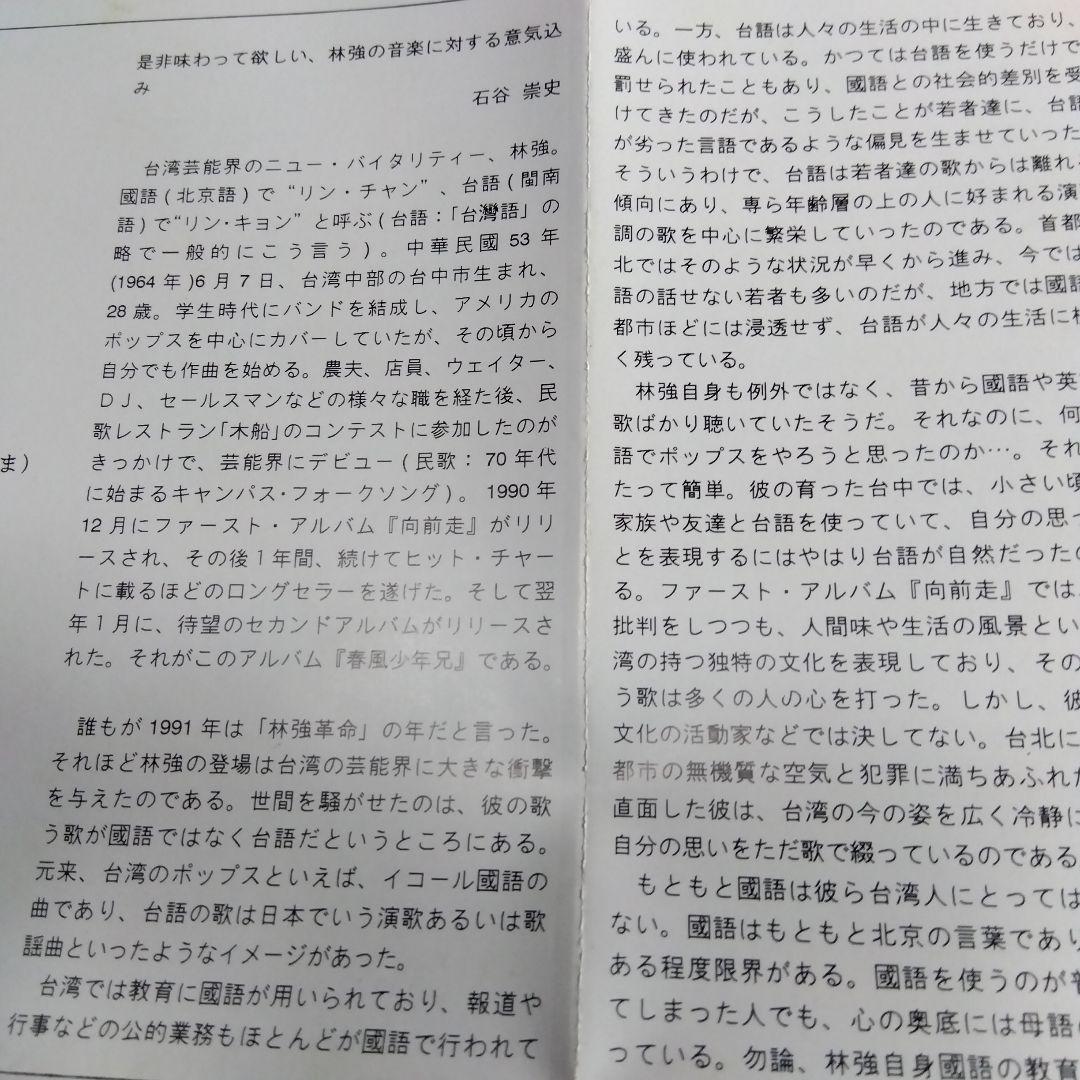 是非味わって欲しい、林強の音楽に対する意気込
み
石谷 崇史
台湾芸能界のニュー・バイタリティー、林強。
國語(北京語)で“リン・チャン”、台語(閩南
語)で“リン・キョン”と呼ぶ(台語：「台灣語」の
略で一般的にこう言う)。中華民國53年
(1964年)6月7日、台湾中部の台中市生まれ、
28歳。学生時代にバンドを結成し、アメリカの
ポップスを中心にカバーしていたが、その頃から
自分でも作曲を始める。農夫、店員、ウェイター、
ＤＪ、セールスマンなどの様々な職を経た後、民
歌レストラン「木船」のコンテストに参加したのが
きっかけで、芸能界にデビュー(民歌：70年代
に始まるキャンパス・フォークソング)。1990年
12月にファースト・アルバム『向前走』がリリ
ースされ、その後1年間、続けてヒット・チャー
トに載るほどのロングセラーを遂げた。そして翌
年1月に、待望のセカンドアルバムがリリースさ
れた。それがこのアルバム『春風少年兄』である。
誰もが1991年は「林強革命」の年だと言った。
それほど林強の登場は台湾の芸能界に大きな衝撃
を与えたのである。世間を騒がせたのは、彼の歌
う歌が國語ではなく台語だというところにある。
元来、台湾のポップスといえば、イコール國語の
曲であり、台語の歌は日本でいう演歌あるいは歌
謡曲といったようなイメージがあった。
台湾では教育に國語が用いられており、報道や
行事などの公的業務もほとんどが國語で行われて
ま）
いる。一方、台語は人々の生活の中に生きており、
盛んに使われている。かつては台語を使うだけで
罰せられたこともあり、國語との社会的差別を受
けてきたのだが、こうしたことが若者達に、台語
が劣った言語であるような偏見を生ませていった
そういうわけで、台語は若者達の歌からは離れ
傾向にあり、専ら年齢層の上の人に好まれる演
調の歌を中心に繁栄していったのである。首都
北ではそのような状況が早くから進み、今では
語の話せない若者も多いのだが、地方では國語
都市ほどには浸透せず、台語が人々の生活に
く残っている。
林強自身も例外ではなく、昔から國語や英
歌ばかり聴いていたそうだ。それなのに、何
語でポップスをやろうと思ったのか…。それ
たって簡単。彼の育った台中では、小さい頃
家族や友達と台語を使っていて、自分の思
とを表現するにはやはり台語が自然だった
る。ファースト・アルバム『向前走』では
批判をしつつも、人間味や生活の風景とい
湾の持つ独特の文化を表現しており、その
う歌は多くの人の心を打った。しかし、彼
文化の活動家などでは決してない。台北に
都市の無機質な空気と犯罪に満ちあふれた
直面した彼は、台湾の今の姿を広く冷静に
自分の思いをただ歌で綴っているのである
もともと國語は彼ら台湾人にとっては
ない。國語はもともと北京の言葉であり
ある程度限界がある。國語を使うのが
てしまった人でも、心の奥底には母語
っている。勿論、林強自身國語の教育